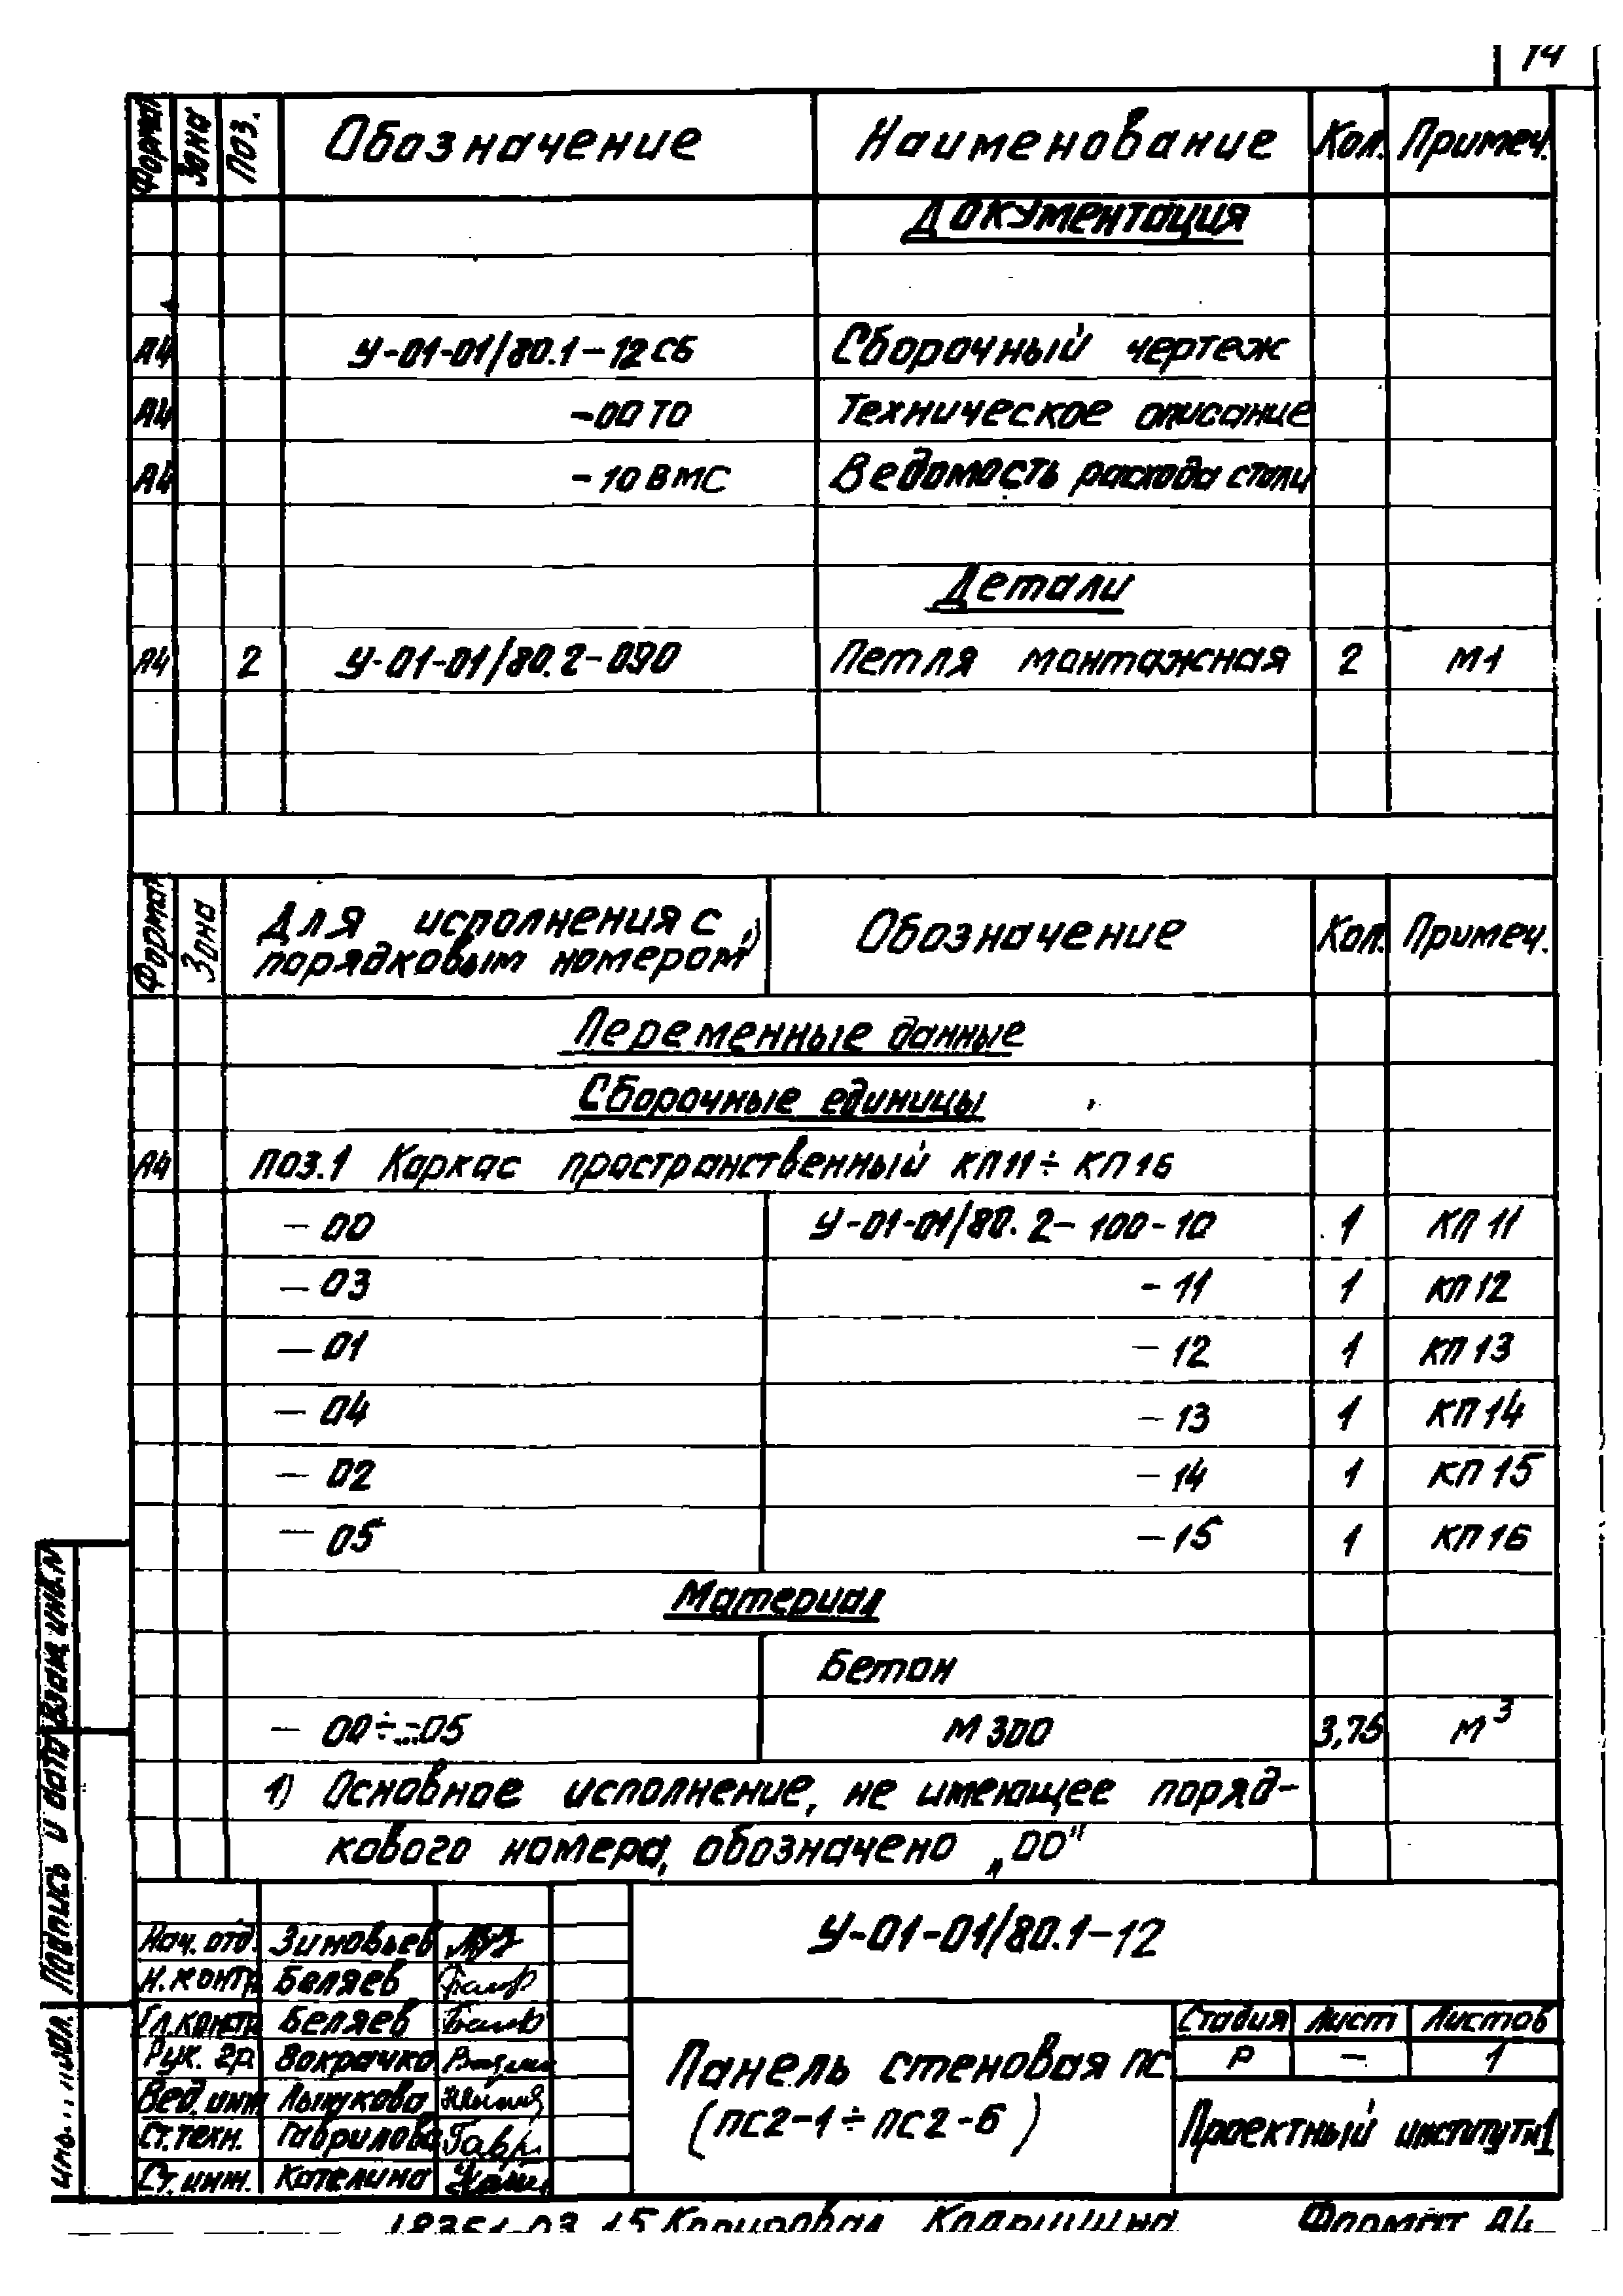 14
Формат Зона Поз. Обозначение Наименование Кол. Примеч.
Документация
А4 У-01-01/80.1-12СБ Сборочный чертеж
А4 -00ТО Техническое описание
А4 -10ВМС Ведомость расхода стали
Детали
А4 2 У-01-01/80.2-090 Петля монтажная 2 М1
Формат Зона Для исполнения с порядковым номером 1) Обозначение Кол. Примеч.
Переменные данные
Сборочные единицы
А4 поз.1 Каркас пространственный КП11÷КП16
— 00 У-01-01/80.2-100-10 1 КП 11
— 03 -11 1 КП 12
— 01 -12 1 КП 13
— 04 -13 1 КП 14
— 02 -14 1 КП 15
— 05 -15 1 КП 16
Материал
Бетон
— 00÷...05 М300 3,75 м³
1) Основное исполнение, не имеющее поряд-
кового номера, обозначено „00"
Взам. инв. N
Подпись и дата
У-01-01/80.1-12
Нач. отд. Зиновьев
Н. контр. Беляев
Гл. констр. Беляев
Рук. гр. Вокрачко
Вед. инж. Лычкова
Ст. техн. Гаврилова
Ст. инж. Котелина
Панель стеновая ПС
(ПС2-1÷ПС2-6)
Стадия Лист Листов
Р — 1
Проектный институт N1
18351-03 15 Копировал Формат А4